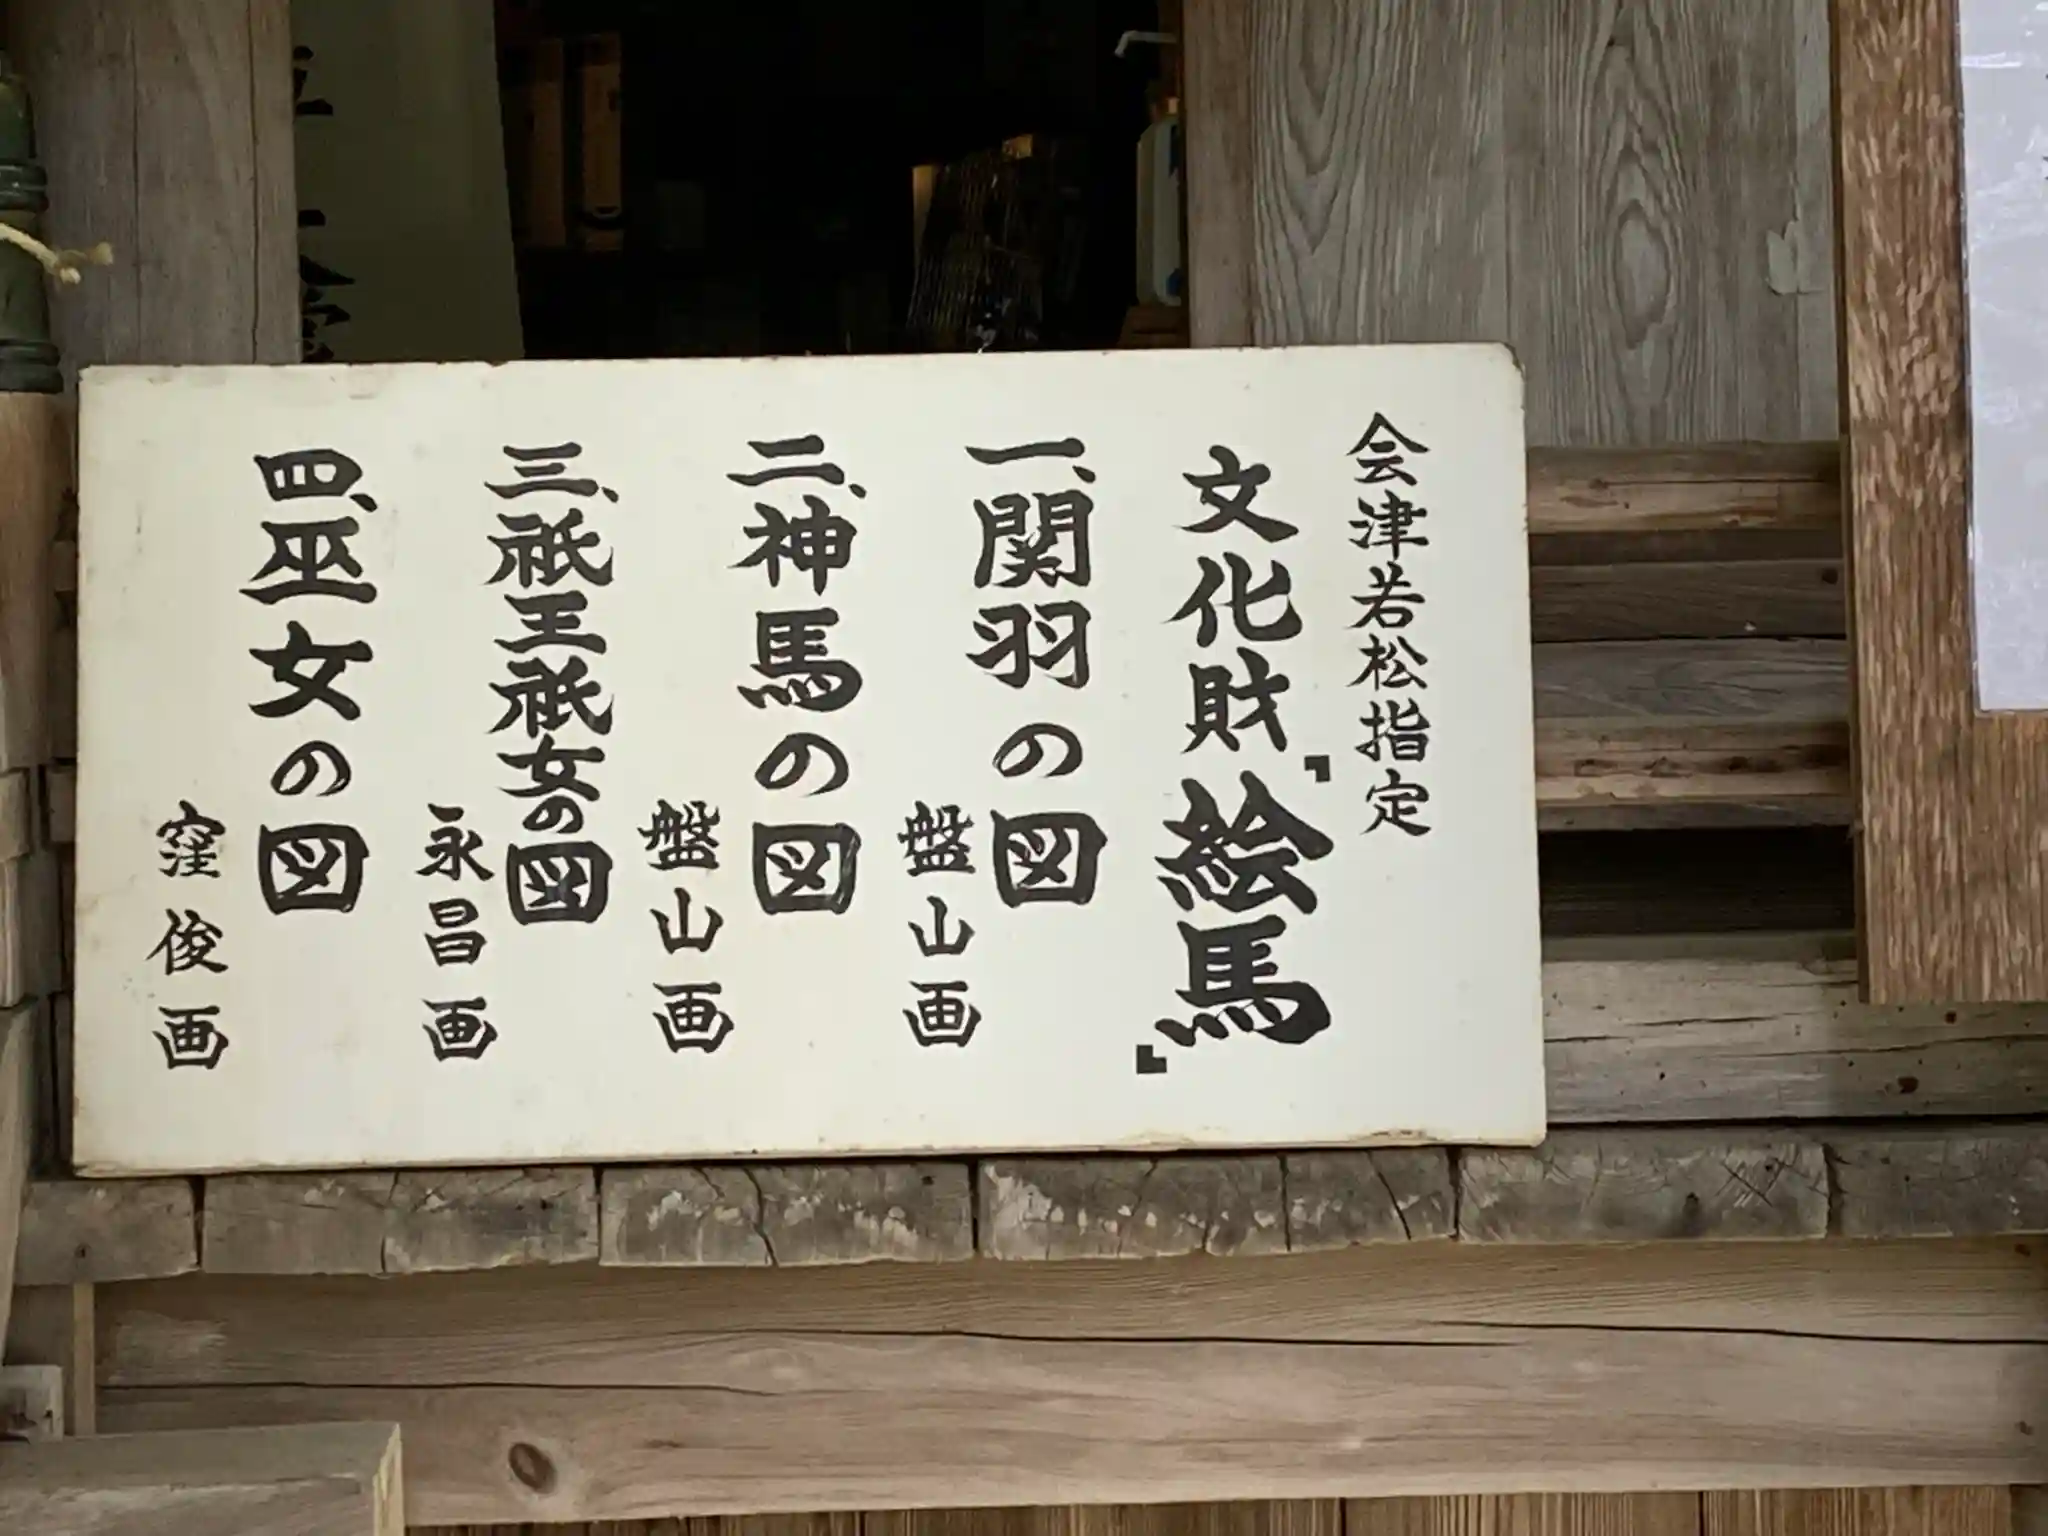 会津若松指定
文化財『絵馬』
一、関羽の図
盤山画
二、神馬の図
盤山画
三、祇王祇女の図
永昌画
四、巫女の図
窪俊画